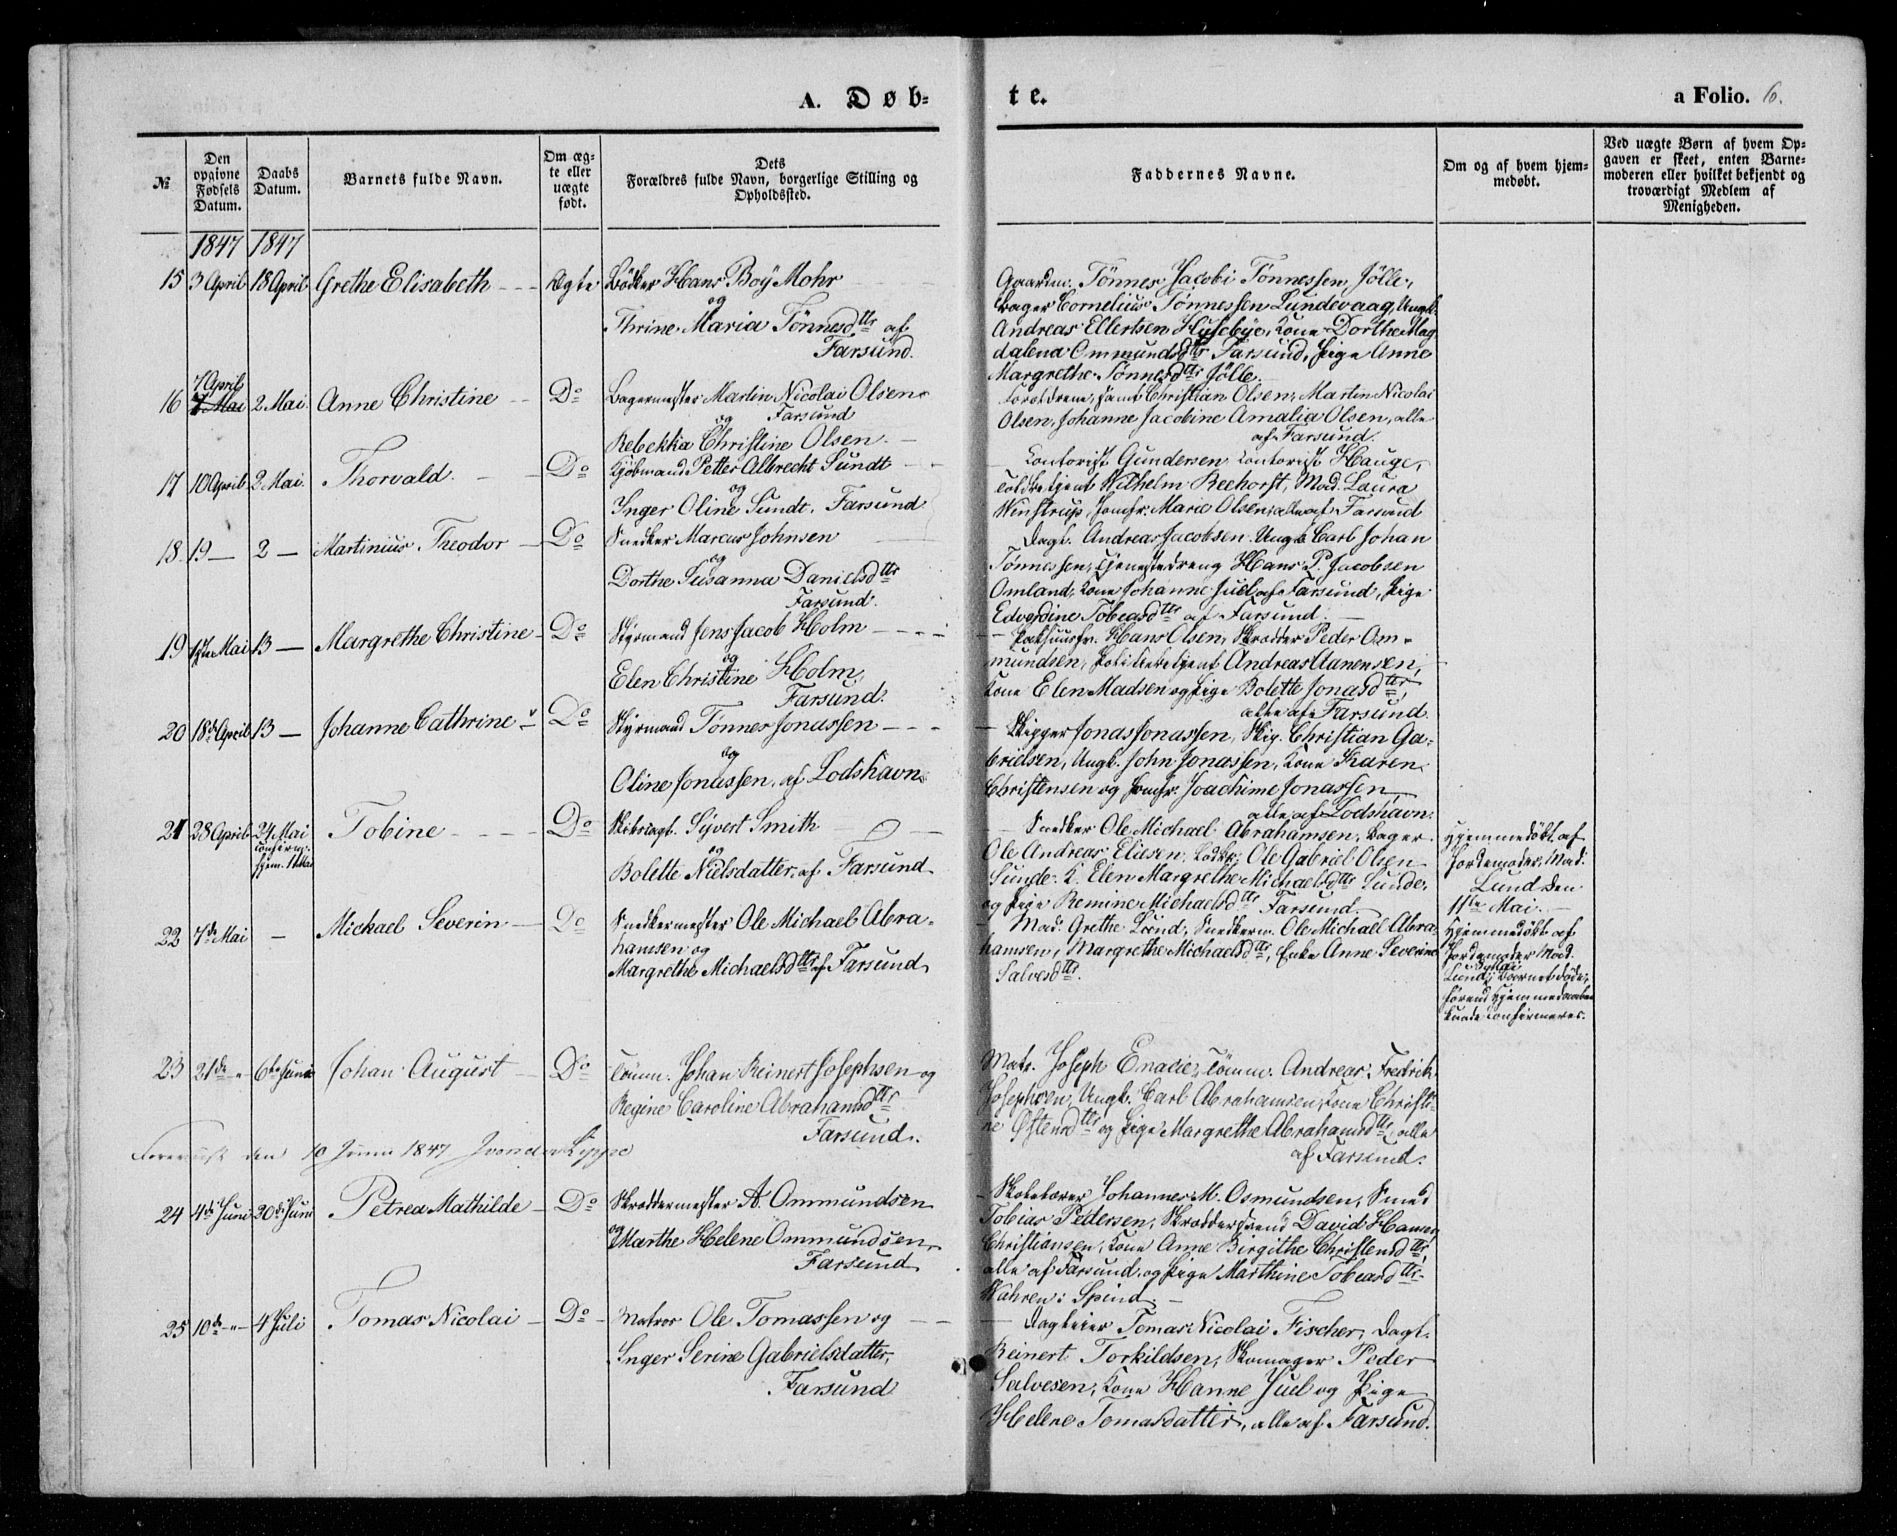 A. Døb=
te.
a Folio. 6.
№
Den opgivne Fødsels Datum.
Daabs Datum.
Barnets fulde Navn.
Om ægte eller uægte født.
Dets Forældres fulde Navn, borgerlige Stilling og Opholdssted.
Faddernes Navne.
Om og af hvem hjemmedøbt.
Ved uægte Børn af hvem Opgaven er skeet, enten Barnemoderen eller hvilket bekjendt og troværdigt Medlem af Menigheden.
1847 1847
15 3 April 18 April Grethe Elisabeth Ægte Bødker Hans Boy Mohr
og
Thrine Maria Tønnesdtr af
Farsund.
Gaardm. Tønnes Jacobi Tønnessen, Jølle,
Bager Cornelius Tønnessen Lundevaag, Ungk.
Andreas Ellertsen Husebye, Kone Dorthe Mag
dalena Ommundsdtr Farsund, Pige Anne
Margrethe Tønnesdtr Jølle.
16 7 April 7 Mai 2 Mai Anne Christine Do Bagermester Martin Nicolai Olsen
og Farsund
Rebekka Christine Olsen.
Forældrene, samt Christian Olsen, Martin Nicolai
Olsen, Johanne Jacobine Amalia Olsen, alle
af Farsund.
17 10 April 2 Mai. Thorvald. Do Kjøbmand Petter Albrecht Sundt
og
Inger Oline Sundt. Farsund
Contorist Gundersen, Contorist Hauge,
Toldbetjent Wilhelm Reehorst, Mad. Laura
Winstrup, Jomfr. Marie Olsen, alle af Farsund
18 19 — 2 — Martinius Theodor Do Snedker Marcus Johnsen
og
Dorthe Susanna Danielsdtr
Farsund.
Dagl. Andreas Jacobsen. Ungk. Carl Johan
Tønnessen, Tjenestedreng Hans P. Jacobsen
Omland, Kone Johanne Juel af Farsund, Pige
Edvardine Tobeasdtr af Farsund.
19 Mai 13 — Margrethe Christine Do Styrmand Jens Jacob Holm
og
Elen Christine Holm,
Farsund.
Hans Olsen, Skrædder Peder Om-
mundsen, Politibetjent Andreas Aanensen,
Kone Elen Madsen og Pige Bolette Jonasdtr,
alle af Farsund.
20 18de April 13 — Johanne Cathrine Do Styrmand Tønnes Jonassen
og
Oline Jonassen, af Lodshavn.
Skipper Jonas Jonassen, Skip. Christian Ga-
brielsen, Ungk. John Jonassen, Kone Karen
Christensen og Jomfr. Joachime Jonassen,
alle af Lodshavn.
21 28 April 24 Mai Tobine Do Sijvert Smith
confirm.
hjem. 11 Mai
og
Bolette Nielsdatter, af Farsund
Snedker Ole Michael Abrahamsen, Bager
Ole Andreas Eliesen, Ole Gabriel Olsen
Sunde. K. Elen Margrethe Michaelsdtr Sunde,
og Pige Remine Michaelsdtr Farsund.
Hjemmedøbt af
Jordemoder Mad.
Lund den
11te Mai.
22 7de Mai — Mickael Severin Do Snedkermester Ole Michael Abra-
hamsen og
Margrethe Michaelsdtr af Farsund
Mad. Grethe Lund, Snedkerm. Ole Michael Abra-
hamsen, Margrethe Michaelsdtr, Enke Anne Severine
Salvesdtr.
Hjemmedøbt af
Jordemoder Mad.
Lund, Barnet døde,
førend Hjemmedaaben
kunde confirmeres.
23 21de 6te Juni Johan August Do Tømm. Johan Reinert Josephsen og
Regine Caroline Abrahamsdtr
Farsund.
Matr. Joseph Tømm. Andreas Fredrik
Josephsen, Ungk. Carl Abrahamsen, Kone Christi-
ne Østensdtr og Pige Margrethe Abrahamsdtr, alle
af Farsund.
Forevist den 10 Junii 1847 J von der Lippe
24 4de Juni 20de Juni Petrea Mathilde Do Skræddermester A. Ommundsen
og
Marthe Helene Ommundsen,
Farsund.
Skolelærer Johannes M. Osmundsen, Smed
Tobias Pedersen, Skræddersvend David
Christiansen, Kone Anne Birgithe Christensdtr,
alle af Farsund, og Pige Marthine Tobeasdtr
i Spind.
25 10de 4 Juli Tomas Nicolai Do Matros Ole Tomassen og
Inger Serine Gabrielsdatter,
Farsund
Tomas Nicolai Fischer, Dagl.
Reinert Torkildsen, Skomager Peder
Salvesen, Kone Hanne Juel og Pige
Helene Tomasdatter, alle af Farsund.